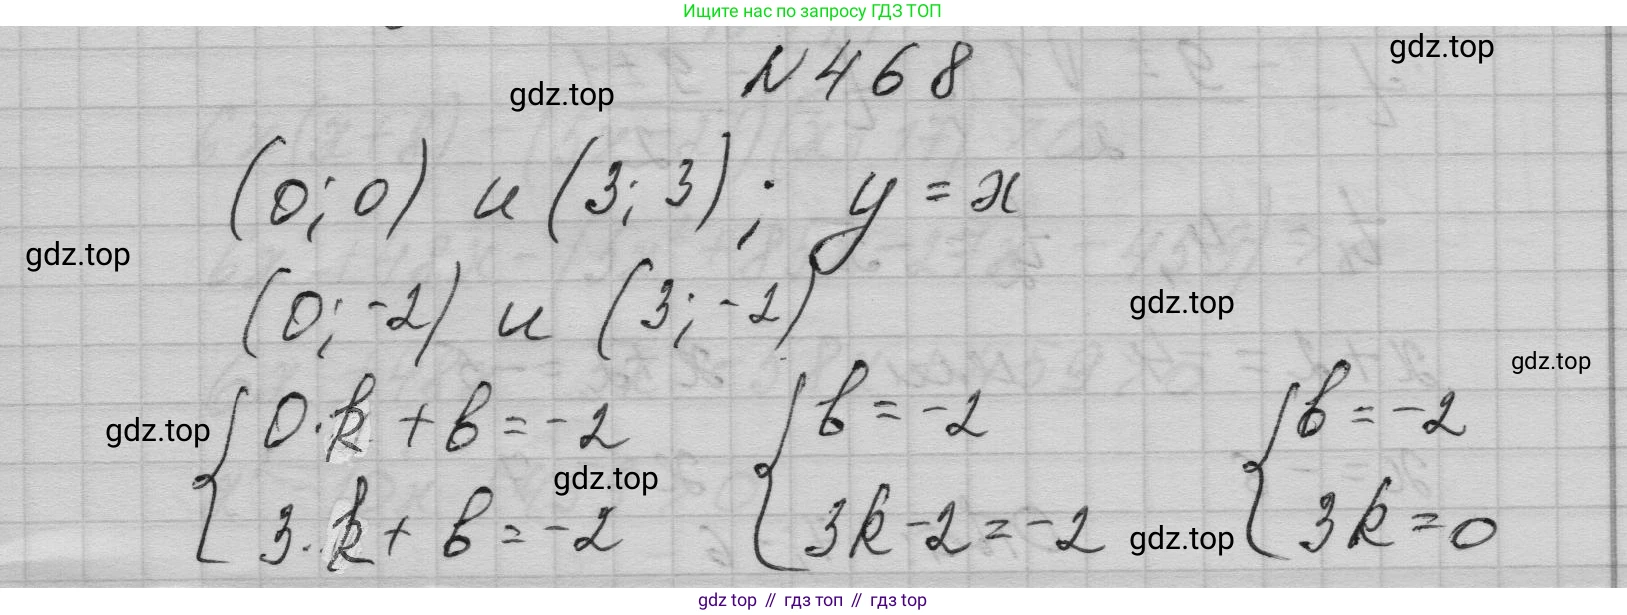 Ищите нас по запросу ГДЗ ТОП
gdz.top
N 468
gdz.top
(0; 0) и (3; 3); y = x
gdz.top
(0; -2) и (3; -2)
gdz.top
gdz.top
{ 0·k + b = -2 { b = -2 { b = -2
gdz.top
gdz.top
{ 3·k + b = -2 { 3k - 2 = -2 { 3k = 0
gdz.top
gdz top // гдз топ // гдз top